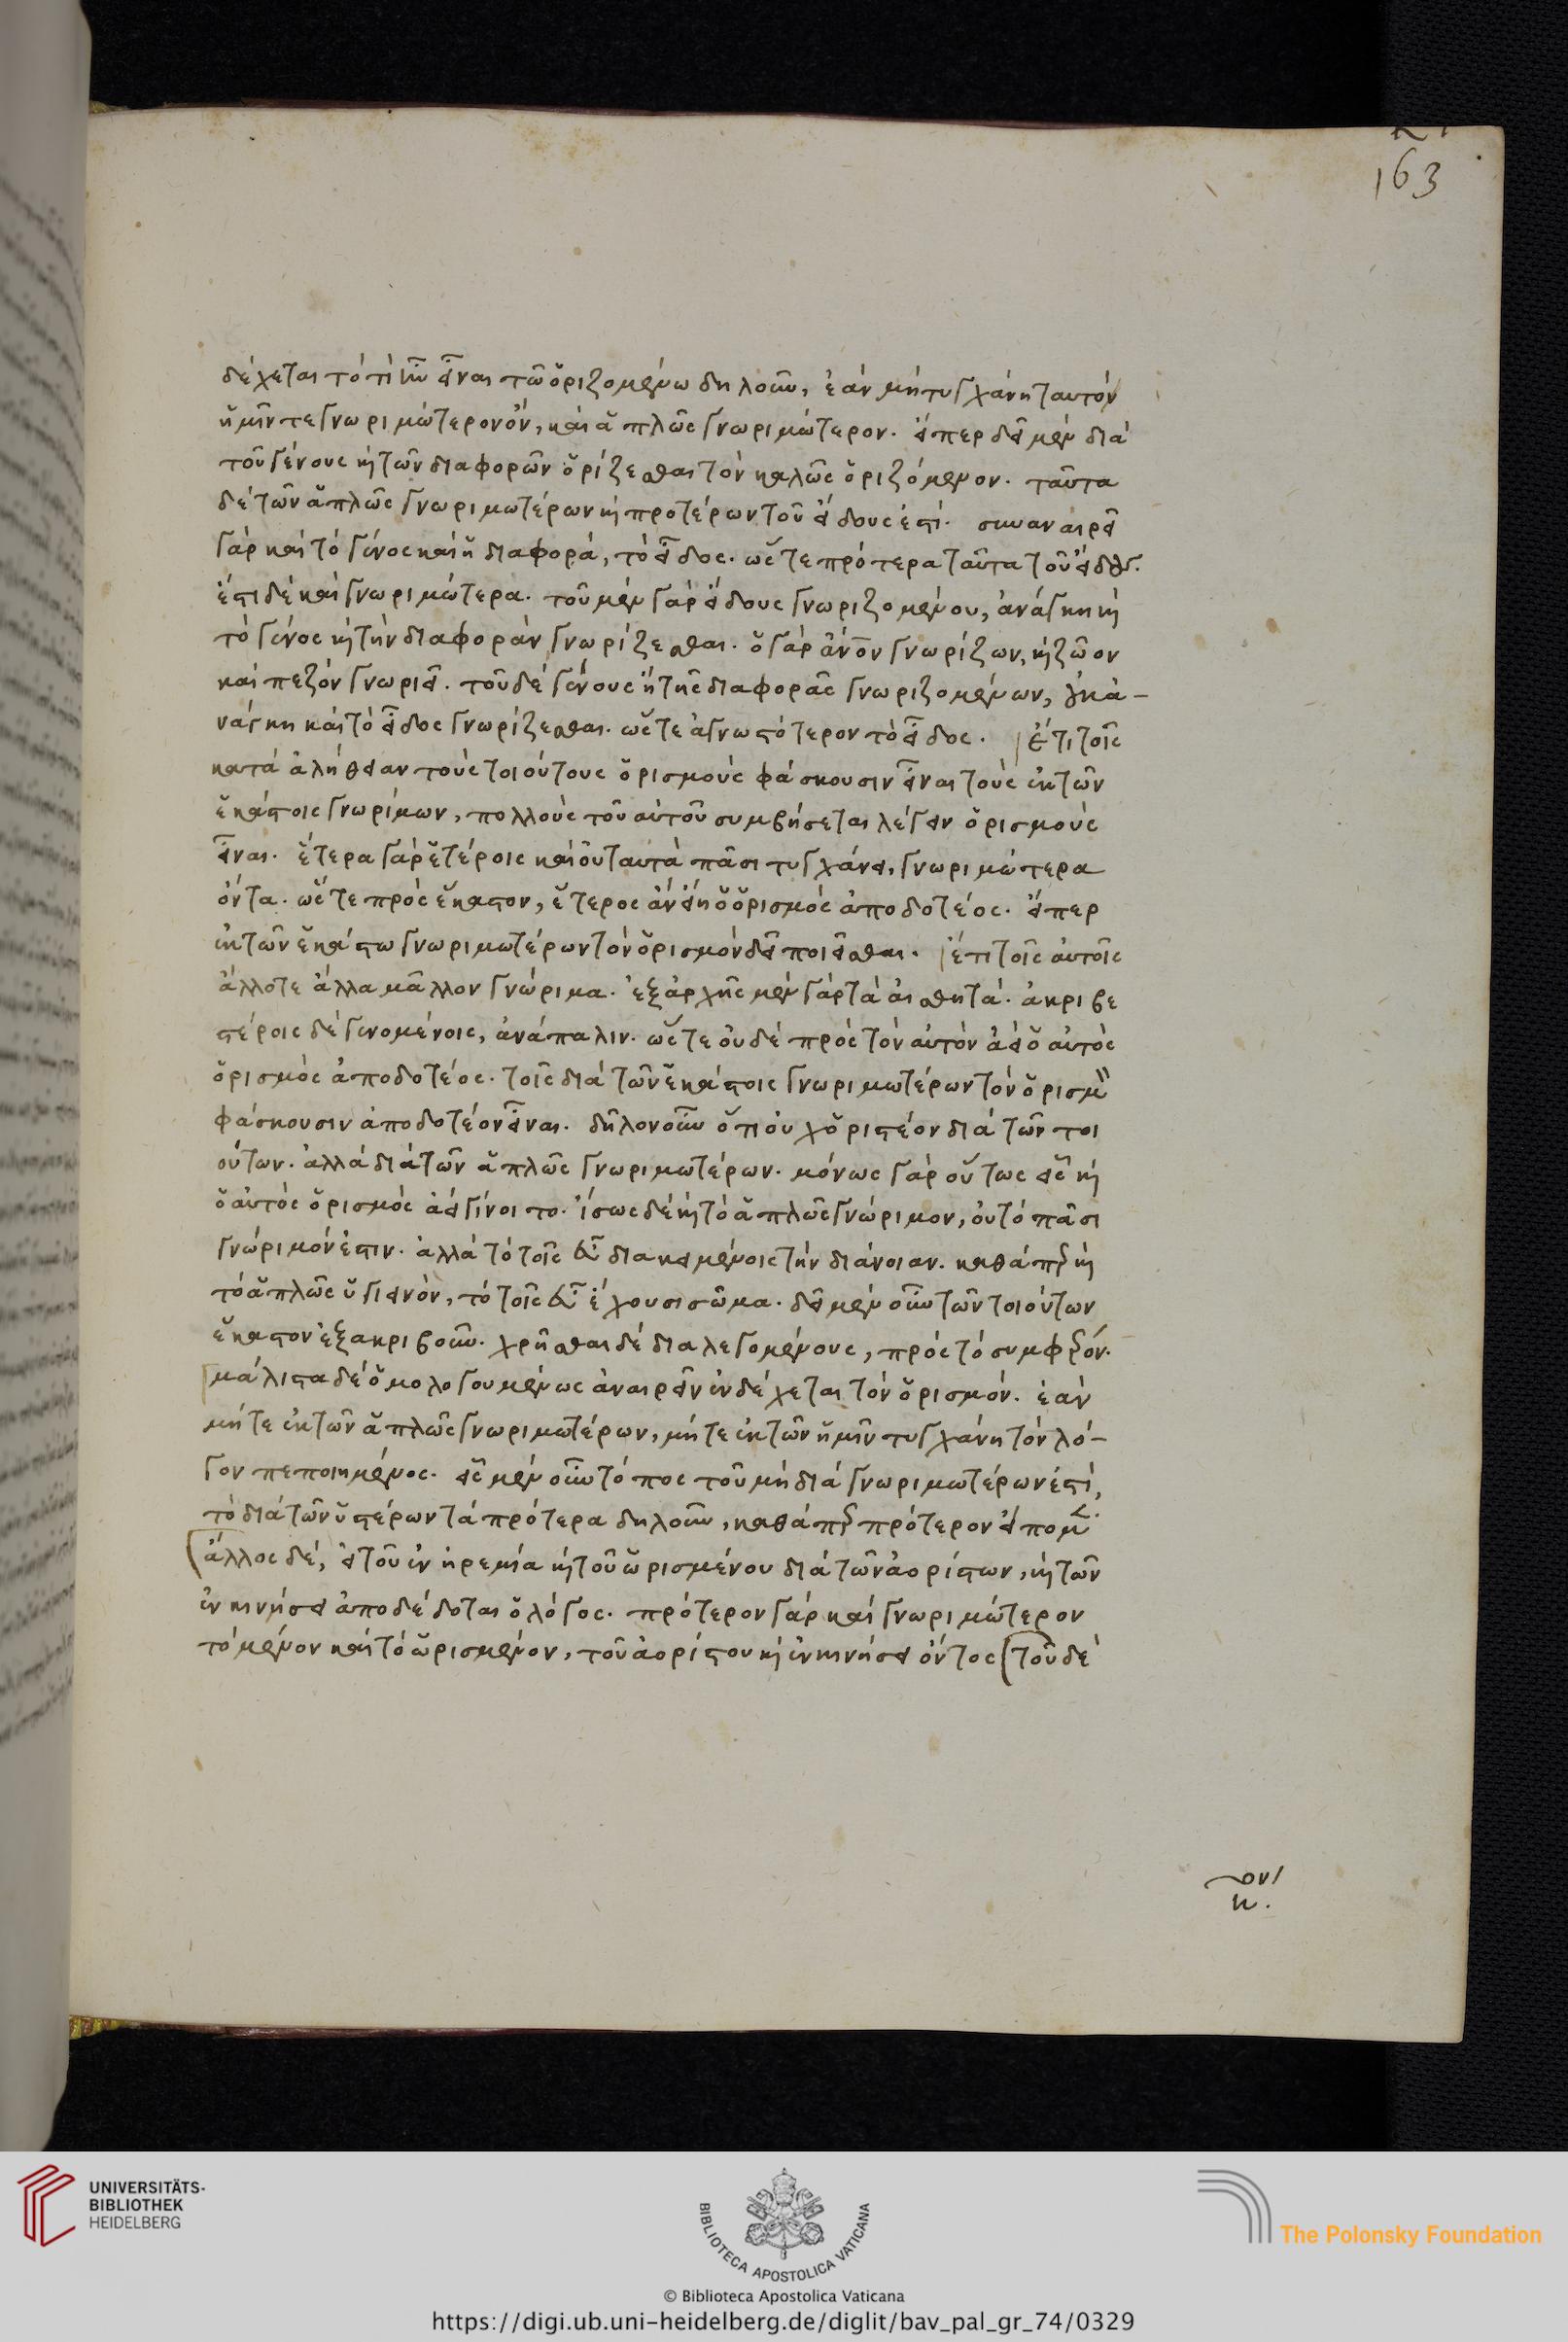 163
δέχεται τὸ τί ἦν εἶναι τῶ ὁριζομένω δηλοῦν, ἐὰν μὴ τυγχάνη ταυτὸν
ἡμῖν τε γνωριμώτερον ὂν, καὶ ἁπλῶς γνωριμώτερον. εἴπερ δεῖ μὲν διὰ
τοῦ γένους κ τῶν διαφορῶν ὁρίζεσθαι τὸν καλῶς ὁριζόμενον. ταῦτα
δὲ τῶν ἁπλῶς γνωριμωτέρων κ προτέρων τοῦ εἴδους ἐστί. συναναιρεῖ
γὰρ καὶ τὸ γένος καὶ ἡ διαφορά, τὸ εἶδος. ὥστε πρότερα ταῦτα τοῦ εἴδους.
ἔστι δὲ καὶ γνωριμώτερα. τοῦ μὲν γὰρ εἴδους γνωριζομένου, ἀνάγκη κ
τὸ γένος κ τὴν διαφορὰν γνωρίζεσθαι. ὁ γὰρ ἄνον γνωρίζων, κ ζῶον
καὶ πεζὸν γνωρίζει. τοῦ δὲ γένους ἢ τῆς διαφορᾶς γνωριζομένων, οὐκ ἀ-
νάγκη καὶ τὸ εἶδος γνωρίζεσθαι. ὥστε ἀγνωστότερον τὸ εἶδος. ἔτι τοῖς
κατὰ ἀλήθειαν τοὺς τοιούτους ὁρισμοὺς φάσκουσιν εἶναι τοὺς ἐκ τῶν
ἑκάστοις γνωρίμων, πολλοὺς τοῦ αὐτοῦ συμβήσεται λέγειν ὁρισμοὺς
εἶναι. ἕτερα γὰρ ἑτέροις καὶ οὐ ταυτὰ πᾶσι τυγχάνει, γνωριμώτερα
ὄντα. ὥστε πρὸς ἕκαστον, ἕτερος ἂν εἴη ὁ ὁρισμὸς ἀποδοτέος. εἴπερ
ἐκ τῶν ἑκάστω γνωριμωτέρων τὸν ὁρισμὸν δεῖ ποιεῖσθαι. ἔτι τοῖς αὐτοῖς
ἄλλοτε ἄλλα μᾶλλον γνώριμα. ἐξ ἀρχῆς μὲν γὰρ τὰ αἰσθητά. ἀκριβε
στέροις δὲ γενομένοις, ἀνάπαλιν. ὥστε οὐδὲ πρὸς τὸν αὐτὸν ἀεὶ ὁ αὐτὸς
ὁρισμὸς ἀποδοτέος. τοῖς διὰ τῶν ἑκάστοις γνωριμωτέρων τὸν ὁρισμὸν
φάσκουσιν ἀποδοτέον εἶναι. δῆλον οὖν ὅτι οὐχ ὁριστέον διὰ τῶν τοι
ούτων. ἀλλὰ διὰ τῶν ἁπλῶς γνωριμωτέρων. μόνως γὰρ οὕτως εἷς κ
ὁ αὐτὸς ὁρισμὸς ἀεὶ γίνοιτο. ἴσως δὲ κ τὸ ἁπλῶς γνώριμον, οὐ τὸ πᾶσι
γνώριμόν ἐστιν. ἀλλὰ τὸ τοῖς εὖ διακειμένοις τὴν διάνοιαν. καθάπερ κ
τὸ ἁπλῶς ὑγιεινὸν, τὸ τοῖς εὖ ἔχουσι σῶμα. δεῖ μὲν οὖν τῶν τοιούτων
ἕκαστον ἐξακριβοῦν. χρῆσθαι δὲ διαλεγομένους, πρὸς τὸ συμφέρον.
μάλιστα δὲ ὁμολογουμένως ἀναιρεῖν ἐνδέχεται τὸν ὁρισμόν. ἐὰν
μήτε ἐκ τῶν ἁπλῶς γνωριμωτέρων, μήτε ἐκ τῶν ἡμῖν τυγχάνη τὸν λό-
γον πεποιημένος. εἷς μὲν οὖν τόπος τοῦ μὴ διὰ γνωριμωτέρων ἐστὶ,
τὸ διὰ τῶν ὑστέρων τὰ πρότερα δηλοῦν, καθάπερ πρότερον εἴπομεν.
ἄλλος δέ, εἰ τοῦ ἐν ἠρεμία κ τοῦ ὡρισμένου διὰ τῶν ἀορίστων, κ τῶν
ἐν κινήσει ἀποδέδοται ὁ λόγος. πρότερον γὰρ καὶ γνωριμώτερον
τὸ μένον καὶ τὸ ὡρισμένον, τοῦ ἀορίστου κ ἐν κινήσει ὄντος τοῦ δὲ
UNIVERSITÄTS-
BIBLIOTHEK
HEIDELBERG
BIBLIOTECA APOSTOLICA VATICANA
The Polonsky Foundation
© Biblioteca Apostolica Vaticana
https://digi.ub.uni-heidelberg.de/diglit/bav_pal_gr_74/0329